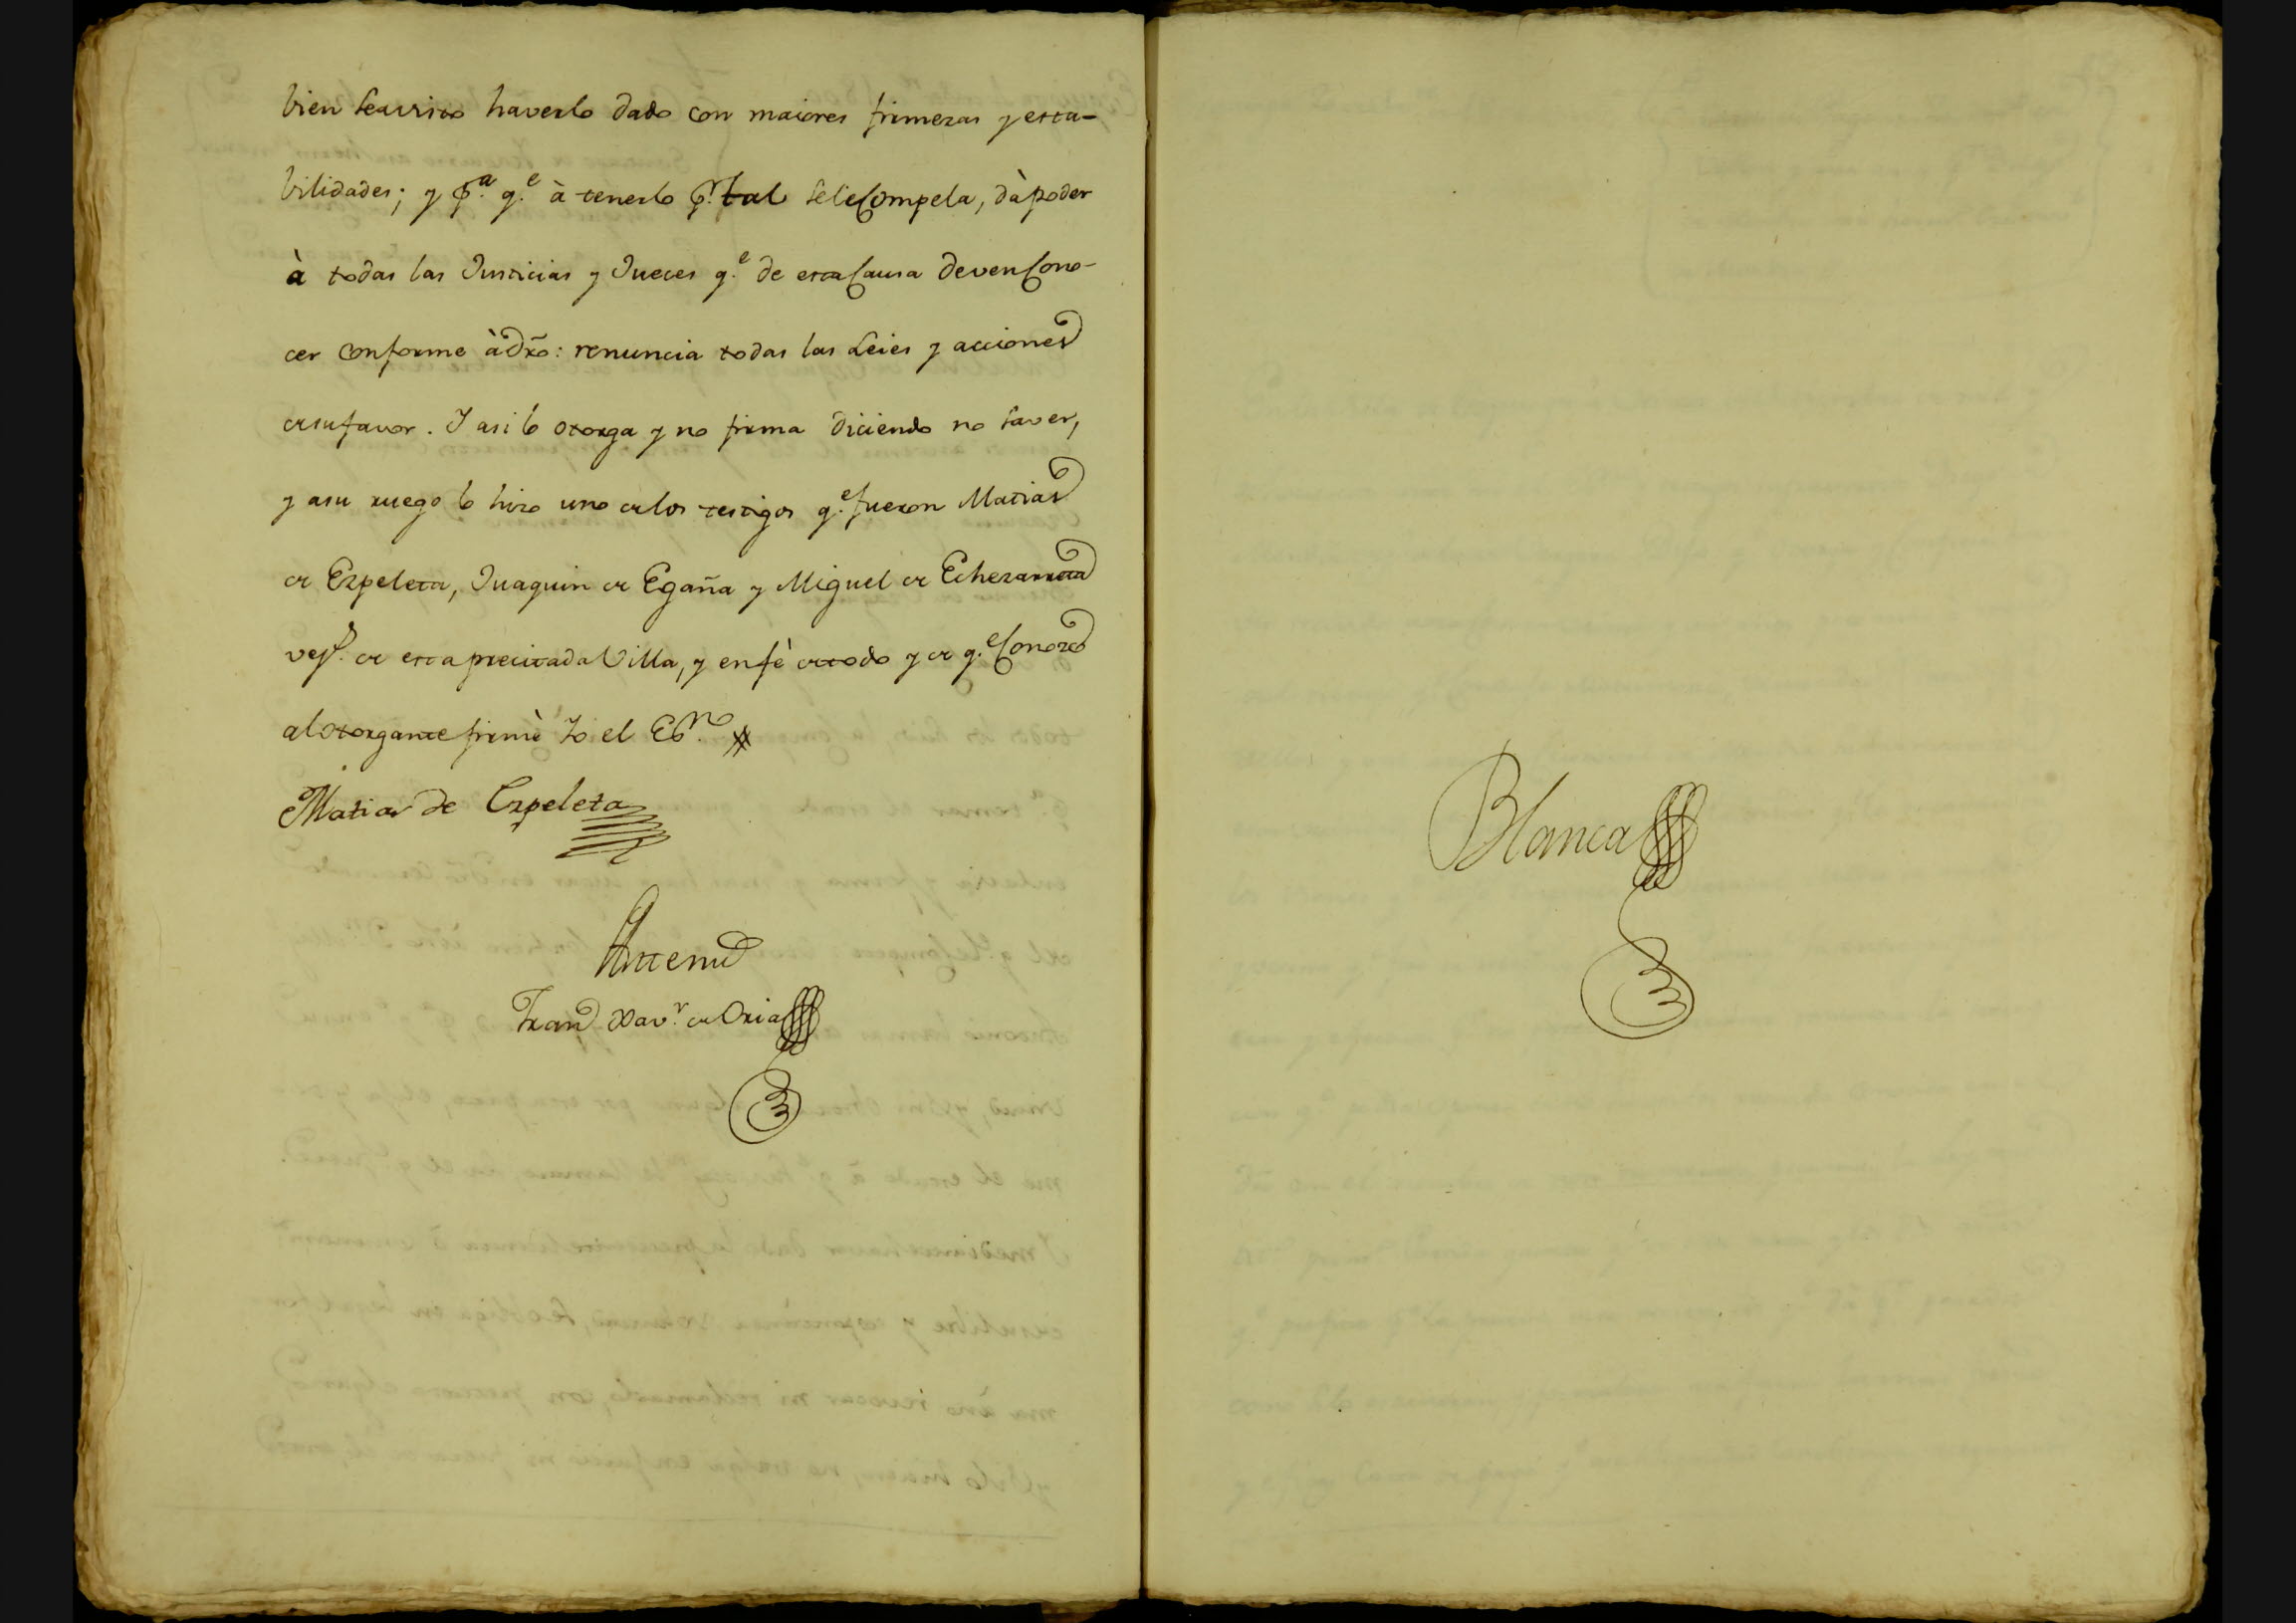 bien searristo haverlo dado con maiores firmezas y esta-
bilidades; y p.ª q.e à tenerlo p.r tal sele Compela, dà poder
à todas las Justicias y Jueces q.e de esta Causa deven Cono-
cer Conforme à dro: renuncia todas las Leies y acciones
de su favor. I asi lo otorga y no firma diciendo no saver,
y a su ruego lo hizo uno de los testigos q.e fueron Matias
de Ezpeleta, Juaquin de Egaña y Miguel de Echezarreta
vez.s de esta precitada Villa, y en fè de todo y de q.e Conozco
al otorgante firmè Yo el Es.no
Matias de Ezpeleta
Antemi
Fran.co Xav.r de Oria
Blanca